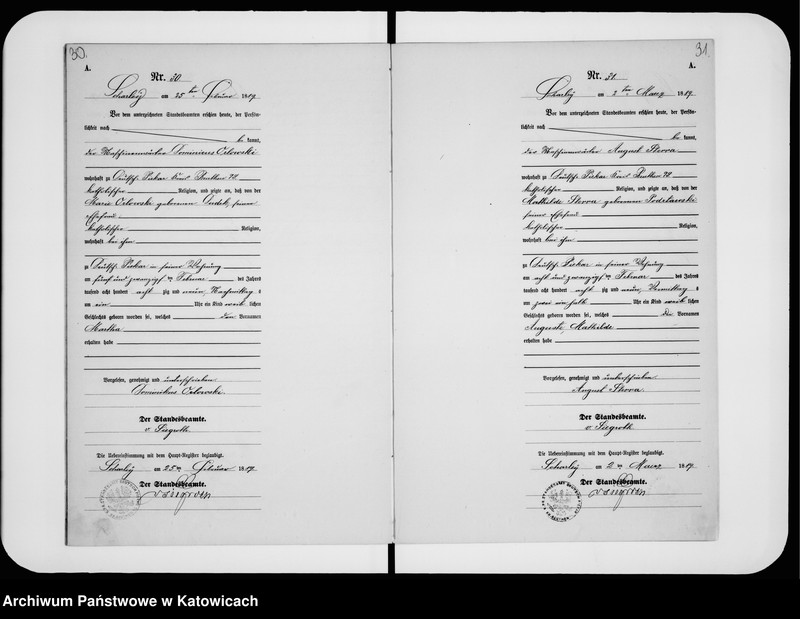 30.
A.
Nr. 30
Scharley am 25ten Februar 1889
Vor dem unterzeichneten Standesbeamten erschien heute, der Persön-
lichkeit nach
be kannt,
der Maschinenwärter Dominicus Orlowski
wohnhaft zu Deutsch Piekar
katholischer Religion, und zeigte an, daß von der
Marie Orlowski geborenen Dudek, seiner
Ehefrau
katholischer Religion,
wohnhaft bei ihm
zu Deutsch Piekar in seiner Wohnung
am fünf und zwanzigsten Februar des Jahres
tausend acht hundert acht zig und neun, Nachmittag s
um ein Uhr ein Kind weib lichen
Geschlechts geboren worden sei, welches den Vornamen
Martha
erhalten habe
Vorgelesen, genehmigt und unterschrieben
Dominikus Orlowski.
Der Standesbeamte.
v Siegroth.
Die Uebereinstimmung mit dem Haupt-Register beglaubigt.
Scharley am 25ten Februar 1889
Der Standesbeamte.
31.
A.
Nr. 31
Scharley am 2ten Maerz 1889
Vor dem unterzeichneten Standesbeamten erschien heute, der Persön-
lichkeit nach
be kannt,
der Maschinenwärter August
wohnhaft zu Deutsch Piekar
katholischer Religion, und zeigte an, daß von der
Mathilde geborenen
seiner Ehefrau
katholischer Religion,
wohnhaft bei ihm
zu Deutsch Piekar in seiner Wohnung
am acht und zwanzigsten Februar des Jahres
tausend acht hundert acht zig und neun, Vormittag s
um zwei ein halb Uhr ein Kind weib lichen
Geschlechts geboren worden sei, welches die Vornamen
Auguste, Mathilde
erhalten habe
Vorgelesen, genehmigt und unterschrieben
August
Der Standesbeamte.
v Siegroth
Die Uebereinstimmung mit dem Haupt-Register beglaubigt.
Scharley am 2ten Maerz 1889
Der Standesbeamte.
Archiwum Państwowe w Katowicach